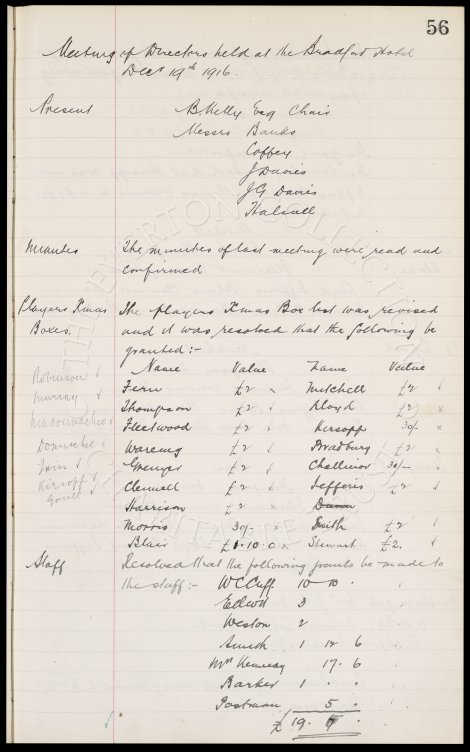 56
Meeting of Directors held at the Bradford Hotel
Decr 19th 1916.
Present B Kelly Esq Chair
Messrs Bainbo
Coffey
J Davies
J G Davies
Halsall
Minutes The minutes of last meeting were read and
confirmed
Players Xmas The players Xmas Box list was revised
Boxes. and it was resolved that the following be
granted :-
Name Value Name Value
Fern £2 x Mitchell £2
Thompson £2 Lloyd £2 x
Fleetwood £2 Kirsopp 30/- x
Wareing £2 Bradbury £2 x
Grenyer £2 Challinor 30/- x
Clennell £2 Jefferis £2
Harrison £2 x Dunn
Morris 30/- x Smith £2
Blair £1.10.0 x Stewart £2.
Robinson
Murray
Maconnachie
Donnachie
Kirsopp
Gault
Staff Resolved that the following grants be made to
the staff :- W C Cuff 10 10 .
Elliott 3
Weston 2
Smith 1 12 6
Mrs Kennedy 17. 6
Barker 1 . .
Postman 5 .
£ 19. 5 .
EVERTON COLLECTION